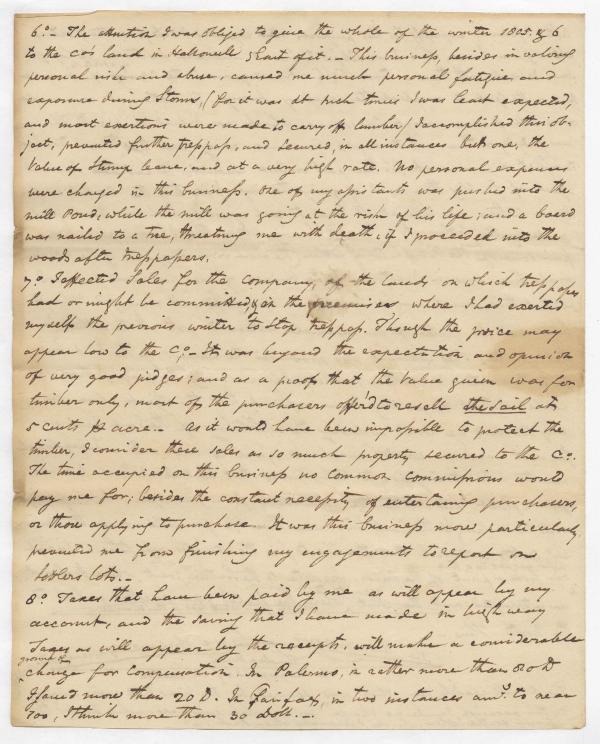 6.° - The attention I was obliged to give the whole of the winter 1805. & 6
to the Co's land in Hallowell & East of it. - This business, besides involving
personal risk and abuse, caused me much personal fatigue and
exposure during Storms, (for it was at such times I was least expected,
and most exertions were made to carry off lumber) I accomplished this ob-
ject, prevented further trespass, and secured, in all instances but one, the
Value of Stump leave, and at a very high rate. No personal expences
were charged in this business. One of my assistants was pushed into the
mill Pond, while the mill was going at the risk of his life; and a board
was nailed to a tree, threating me with death, if I proceeded into the
woods after trespassers.
7.° I effected Sales for the company, of the lands on which trespasses
had or might be committed, & in the premises where I had exerted
myself the previous winter to Stop trespass. Though the price may
appear low to the Co. - It was beyond the expectation and opinion
of very good judges; and as a proof that the Value given was for
timber only, most of the purchasers offerd to resell the Soil at
5 cents ℔ acre. - As it would have been impossible to protect the
timber, I consider these sales as so much property secured to the Co.
The time occupied on this business no common commissions would
pay me for; besides the constant necessity of entertaining purchasers,
or those applying to purchase. It was this business more particularly
prevented me from finishing my engagements to report on
Settlers lots. -
8.° Taxes that have been paid by me as will appear by my
account, and the saving that I have made in high way
Taxes as will appear by the receipts, will make a considerable
ground of
charge for Compensation. In Palermo, in rather more than 80 D
I saved more than 20 D. In Fairfax, in two instances amo. to near
700, I think more than 30 Doll. -